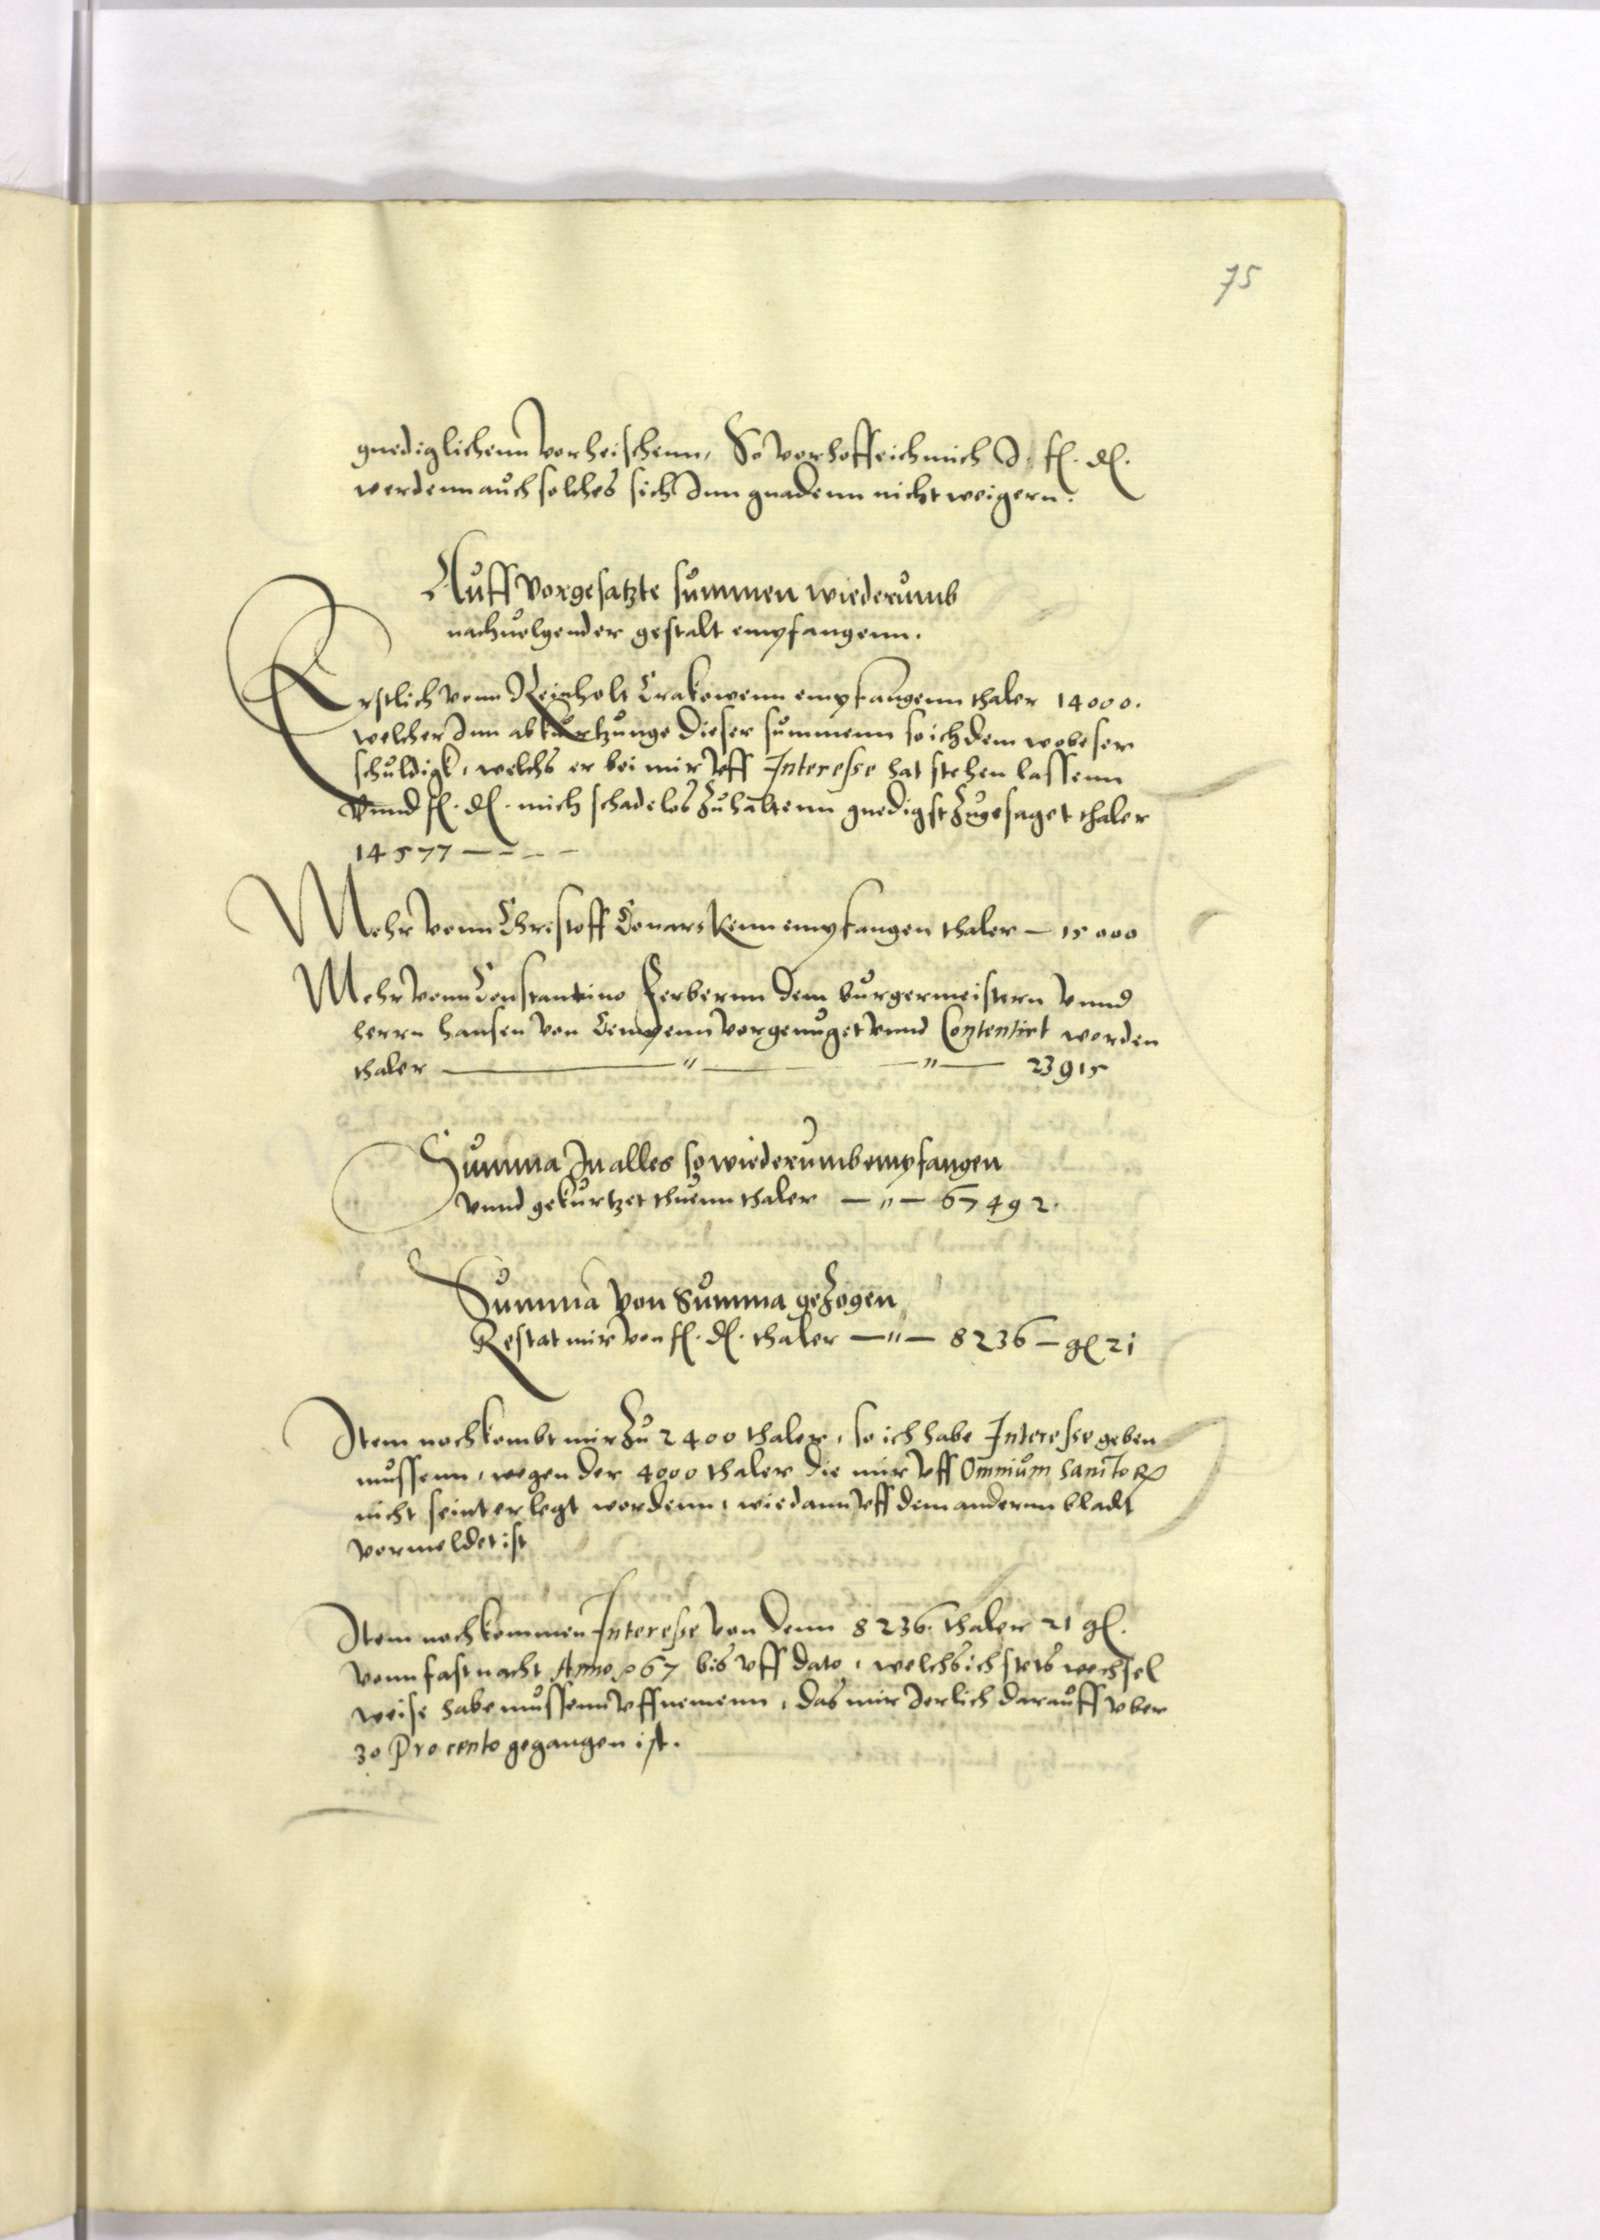 75
gnediglichenn vorheischenn, So vorhoffe ich mich J. fl. dl.
werdenn auch solches sich Inn gnadenn nicht weigern.
Auff vorgesatzte summen wiederumb
nachuolgender gestalt empfangenn.
Erstlich vonn Reinholt Crakowenn empfangenn thaler 14000.
welcher Inn abkurtzunge dieser summenn so ich dem wobeser
schuldigk, welchs er bei mir vff Interesse hat stehen lassenn
Vnnd fl. dl. mich schadelos zuhaltenn gnedigst zugesaget thaler
14577 — — — —
Mehr vonn Christoff Conarskenn empfangen thaler — 15000
Mehr vonn Constantino Ferbernn dem burgermeistern vnnd
herrn hansen von Kempenn vorgenuget vnnd Contentirt worden
thaler — " — " — 23915
Summa In alles so wiederumb empfangen
vnnd gekurtzet thuenn thaler — " — 67492.
Summa von Summa gezogen
Restat mir von fl. dl. thaler — " — 8236 — gl 21
Item noch kombt mir zu 2400 thaler, so ich habe Interesse geben
mussenn, wegen der 4000 thaler die mir vff Omnium Sanctorum
nicht seint erlegt wordenn, wie dann vff dem andernn bladt
vormeldet ist
Item noch kommen Interesse von denn 8236. thaler 21 gl.
vonn fastnacht Anno 67 bis vff dato, welchs ich stets wechsel
weise habe mussenn vffnemenn, das mir Jerlich darauff vber
30 Pro cento gegangen ist.